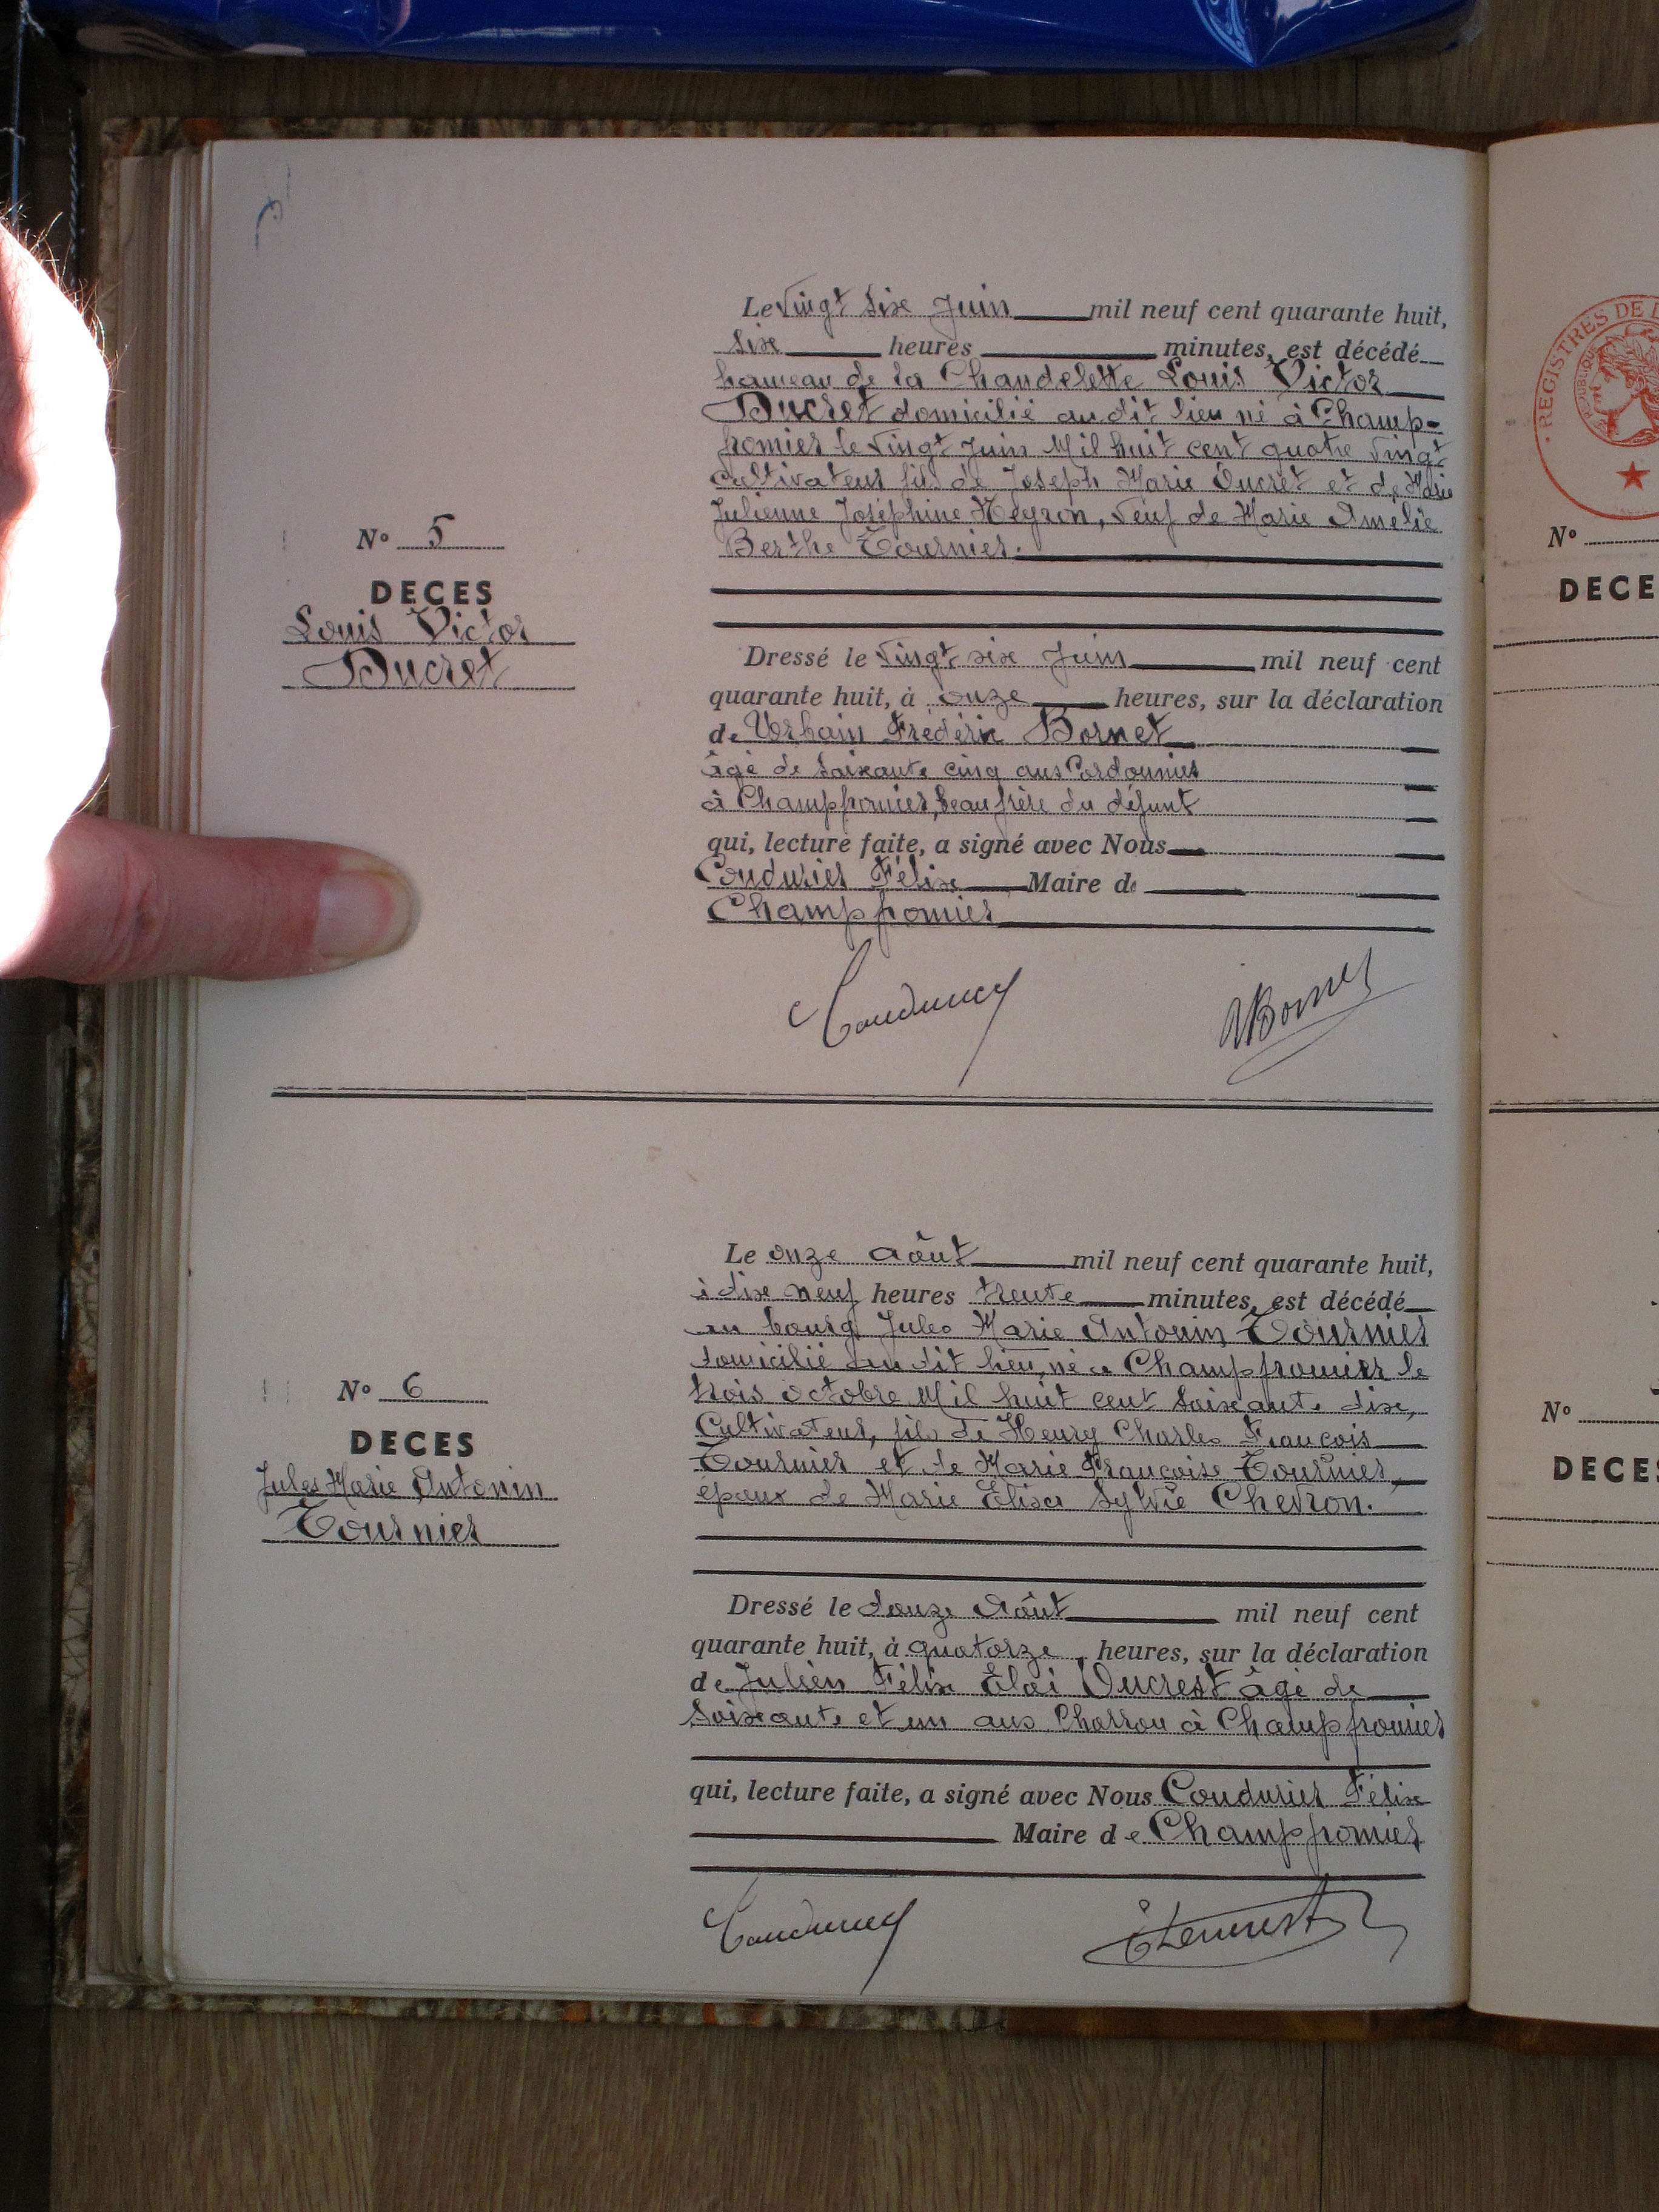 Le Vingt Six Juin mil neuf cent quarante huit,
Six heures minutes, est décédé
hameau de la Chandelette Louis Victor
Ducret domicilié audit lieu né à Champ-
fromier le Vingt Juin Mil huit cent quatre Vingt
Cultivateur fils de Joseph Marie Ducret et de Marie
Julienne Joséphine Meyron, Veuf de Marie Amélie
Berthe Tournier.
N° 5
DECES
Louis Victor
Ducret
Dressé le Vingt six Juin mil neuf cent
quarante huit, à onze heures, sur la déclaration
de Urbain Frédéric Bornet
âgé de soixante cinq ans Cordonnier
à Champfromier, beau frère du défunt
qui, lecture faite, a signé avec Nous
Coudurier Félix Maire de
Champfromier
Le onze Août mil neuf cent quarante huit,
à dix neuf heures trente minutes, est décédé
au bourg Jules Marie Antonin Tournier
domicilié audit lieu, né à Champfromier le
trois octobre Mil huit cent soixante dix,
Cultivateur, fils de Henry Charles François
Tournier et de Marie Françoise Tournier,
époux de Marie Elisa Sylvie Chevron.
N° 6
DECES
Jules Marie Antonin
Tournier
Dressé le douze Août mil neuf cent
quarante huit, à quatorze heures, sur la déclaration
de Julien Félix Eloi Ducrest âgé de
soixante et un ans Charron à Champfromier
qui, lecture faite, a signé avec Nous Coudurier Félix
Maire de Champfromier
REGISTRES DE
N°
DECE
N°
DECES